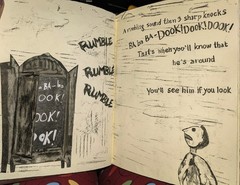 RUMBLE
RUMBLE
RUMBLE
BA-BA
DOOK!
DOOK!
OOK!
A rumbling sound then 3 sharp knocks
BA BA BA-DOOK! DOOK! DOOK!
That's when you'll know that
he's around
You'll see him if you look